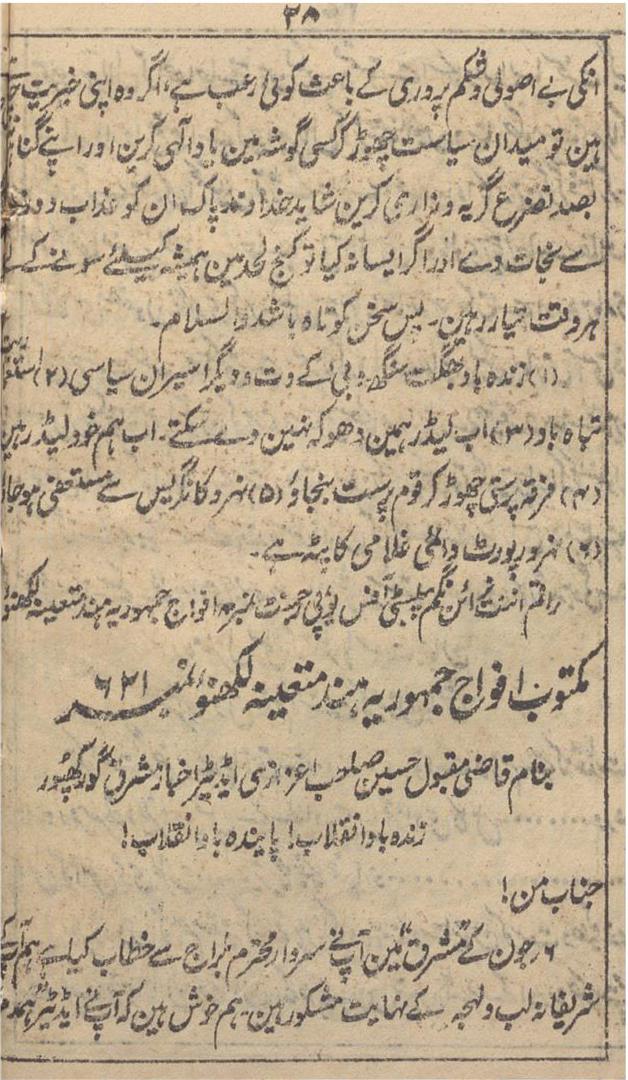 ۳۸
انکی بے اصولی و شکم پروری کے باعث کوئی رعب ہے، اگر وہ اپنی خیریت
ہین تو میدان سیاست چھوڑ کر کسی گوشہ مین یاد الٰہی کرین اور اپنے
بصد تضرع گریہ و زاری کرین شاید خداوند پاک ان کو عذاب دوزخ
سے نجات دے اور اگر ایسا نہ کیا تو کنج لحد مین ہمیشہ کیلئے سونے کے
ہر وقت تیار رہین۔ پس سخن کوتاہ باشد والسلام۔
(۱) زندہ باد بھگت سنگھ و بی کے دت و دیگر اسیران سیاسی (۲)
تباہ باد (۳) اب لیڈر ہمین دھوکہ نہین دے سکتے۔ اب ہم خود لیڈر ہین
(۴) فرقہ پرستی چھوڑ کر قوم پرست بنجاؤ (۵) نہرو کانگریس سے مستعفی
(۶) نہرو رپورٹ دائمی غلامی کا پٹہ ہے۔
راقم اننت نرائن نگم پبلسٹی آفس یوپی افواج جمہوریہ ہند متعینہ لکھنؤ
مکتوب افواج جمہوریہ ہند متعینہ لکھنؤ نمبر ۶۲۱
بنام قاضی مقبول حسین صاحب اعزازی ایڈیٹر اخبار مشرق گورکھپور
زندہ باد انقلاب! پایندہ باد انقلاب!
جناب من!
۶؍جون کے "مشرق" مین آپنے سردار محترم بلراج سے خطاب کیا ہے ہم
شریفانہ لب و لہجہ کے نہایت مشکور ہین۔ ہم خوش ہین کہ آپنے ایڈیٹر